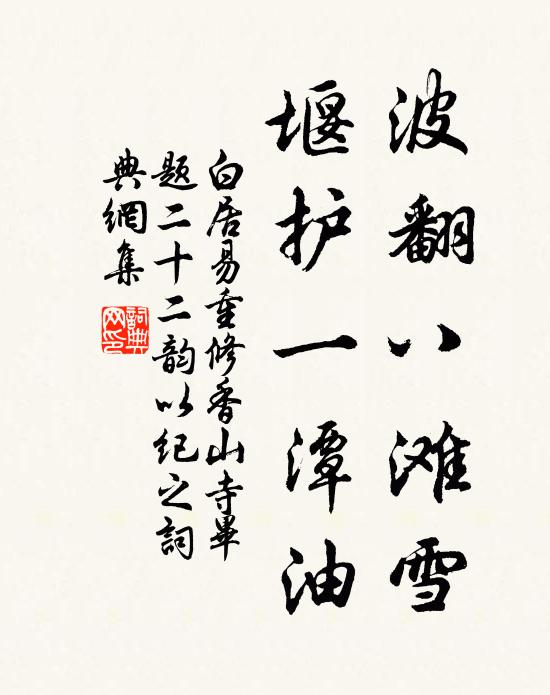 波翻八滩雪
堰护一潭油
白居易重修香山寺畢
題二十二韵以纪之詞
典網集
詞典
网印